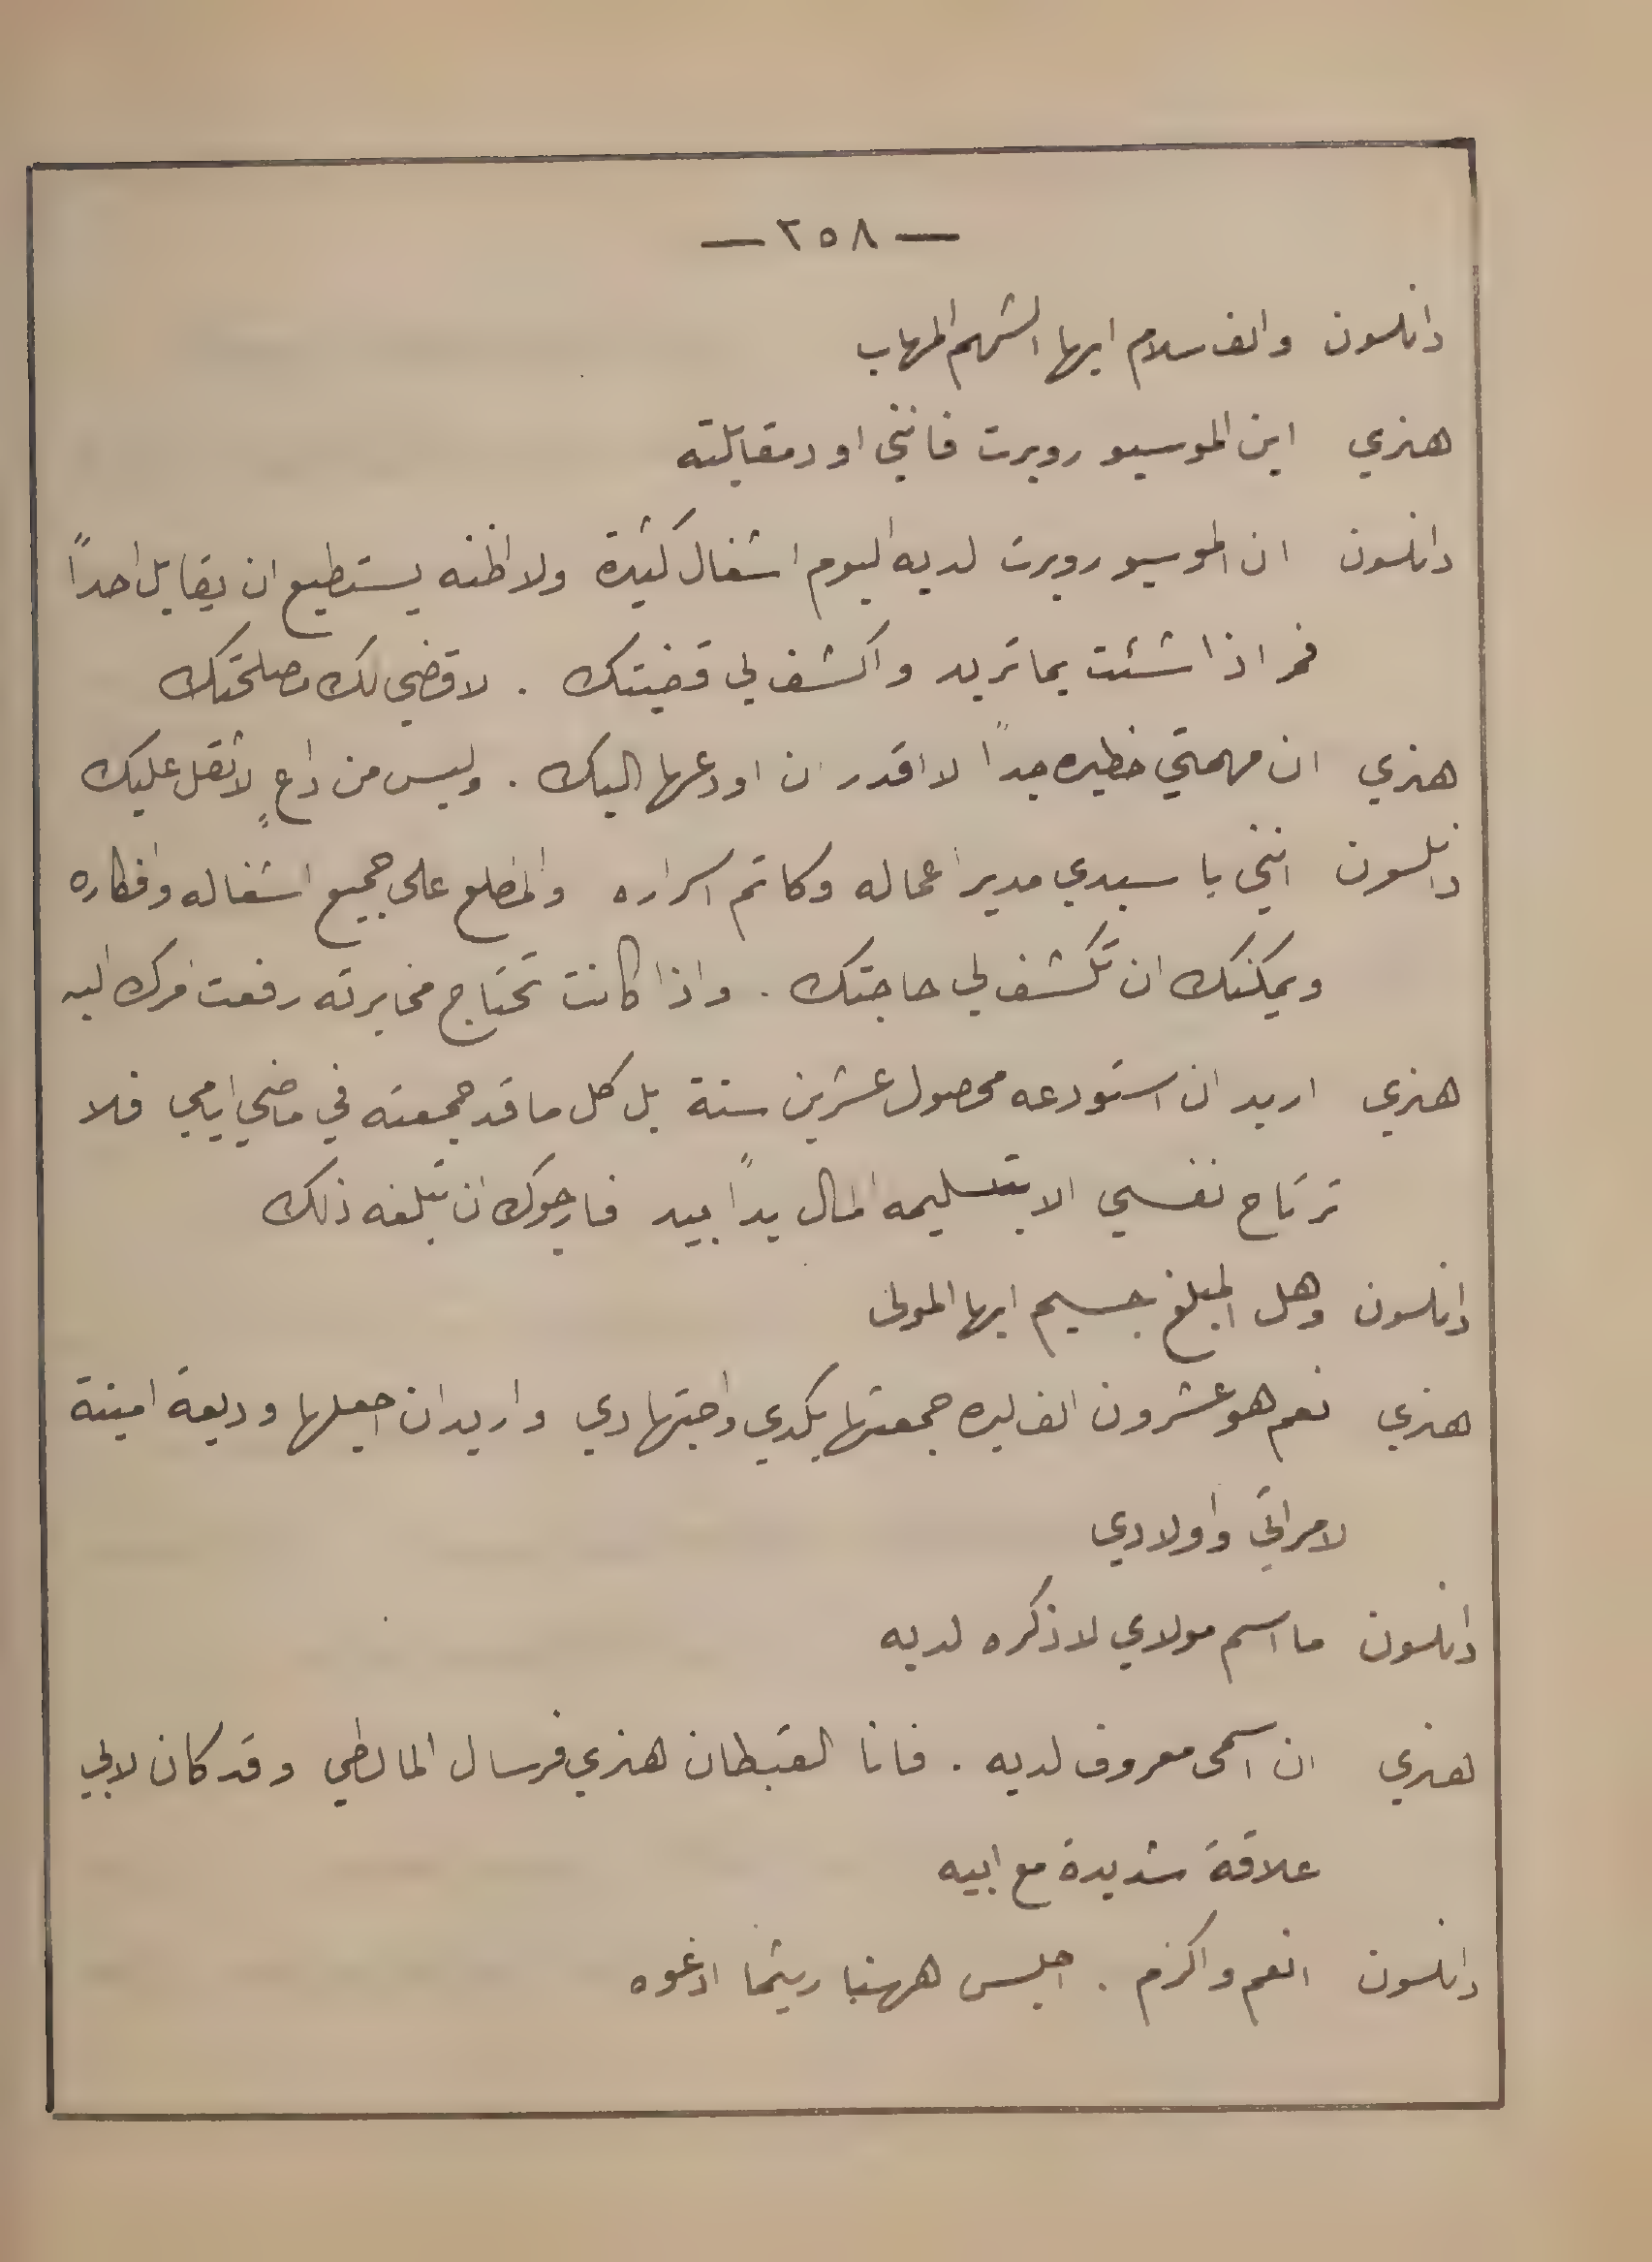 — ٢٥٨ —
دانلسون والف سلام ايها الشهم المهاب
هنري اين الموسيو روبرت فانني اود مقابلته
دانلسون ان الموسيو روبرت لديه اليوم اشغال كثيرة ولا اظنه يستطيع ان يقابل احداً
فمر اذا شئت بما تريد واكشف لي قضيتك . لاقضي لك مصلحتك
هنري ان مهمتي خطيره جداً لا اقدر ان اودعها اليك . وليس من داعٍ لاثقل عليك
دانلسون انني يا سيدي مدير اعماله وكاتم اسراره والمطلع على جميع اشغاله وافكاره
ويمكنك ان تكشف لي حاجتك . واذا كانت تحتاج مخابرته رفعت امرك اليه
هنري اريد ان استودعه محصول عشرين سنة بل كل ما قد جمعته في ماضي ايامي فلا
ترتاح نفسي الا بتسليمه المال يداً بيد فارجوك ان تبلغه ذلك
دانلسون وهل المبلغ جسيم ايها المولى
هنري نعم هو عشرون الف ليره جمعتها بكدي واجتهادي واريد ان اجعلها وديعة امينة
لامراتي واولادي
دانلسون ما اسم مولاي لاذكره لديه
هنري ان اسمى معروف لديه . فانا القبطان هنري فرسال المالطي وقد كان لابي
علاقة شديدة مع ابيه
دانلسون انعم واكرم . اجلس ههنا ريثما ادعوه